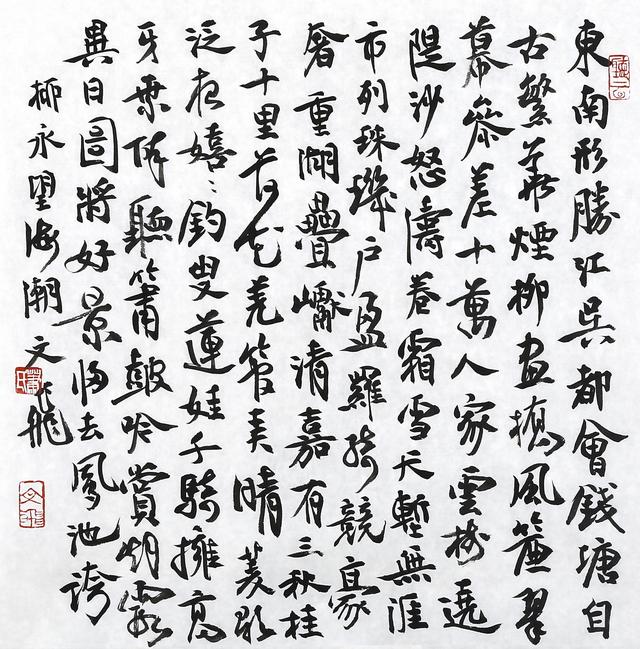 東南形勝江吳都會錢塘自
古繁華煙柳畫橋風簾翠
幕參差十萬人家雲樹遶
隄沙怒濤卷霜雪天塹無涯
市列珠璣戶盈羅綺競豪
奢重湖疊巘清嘉有三秋桂
子十里荷花羌管弄晴菱歌
泛夜嬉〻釣叟蓮娃千騎擁高
牙乘醉聽簫鼓吟賞烟霞
異日圖將好景歸去鳳池誇
柳永望海潮文飛